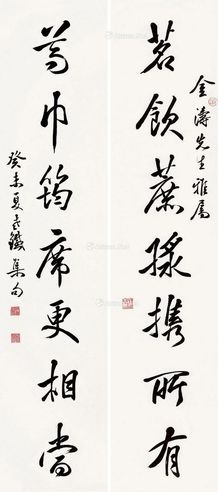 金濤先生雅屬
茗飲蔗漿攜所有
葛巾筠席更相當
癸未夏 集句